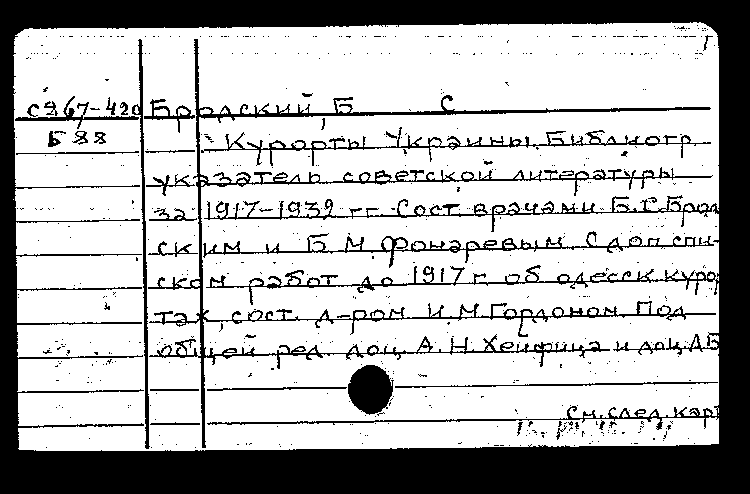 1
с267-420 Бродский, Б С
Б 88
Курорты Украины. Библиогр.
указатель советской литературы
за 1917-1932 гг. Сост. врачами Б.С. Брод
ским и Б.М. Фонаревым. С доп. спи-
ском работ до 1917 г. об одесск. куро
тах, сост. д-ром И.М. Гордоном. Под
общей ред. доц. А.Н. Хейфица и доц. Д.Б
См. след. карт